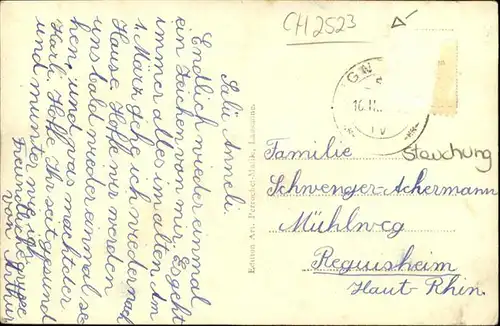 CH 2523
Salü Anneli
Endlich wieder einmal
ein Zeichen von mir. Es geht
immer alles im alten. Am
1. März gehe ich wieder nach
Hause. Hoffe wir werden
uns bald wieder einmal se
hen, und was macht der
Karli. Hoffe Ihr seit gesund
und munter wie ich
Freundliche grüsse
von Arthur
Edition Art. Perrochet-Matile, Lausanne
GN
16.II.
IV
Stauchung
Familie
Schwenger-Ackermann
Mühlweg
Reguisheim
Haut-Rhin.